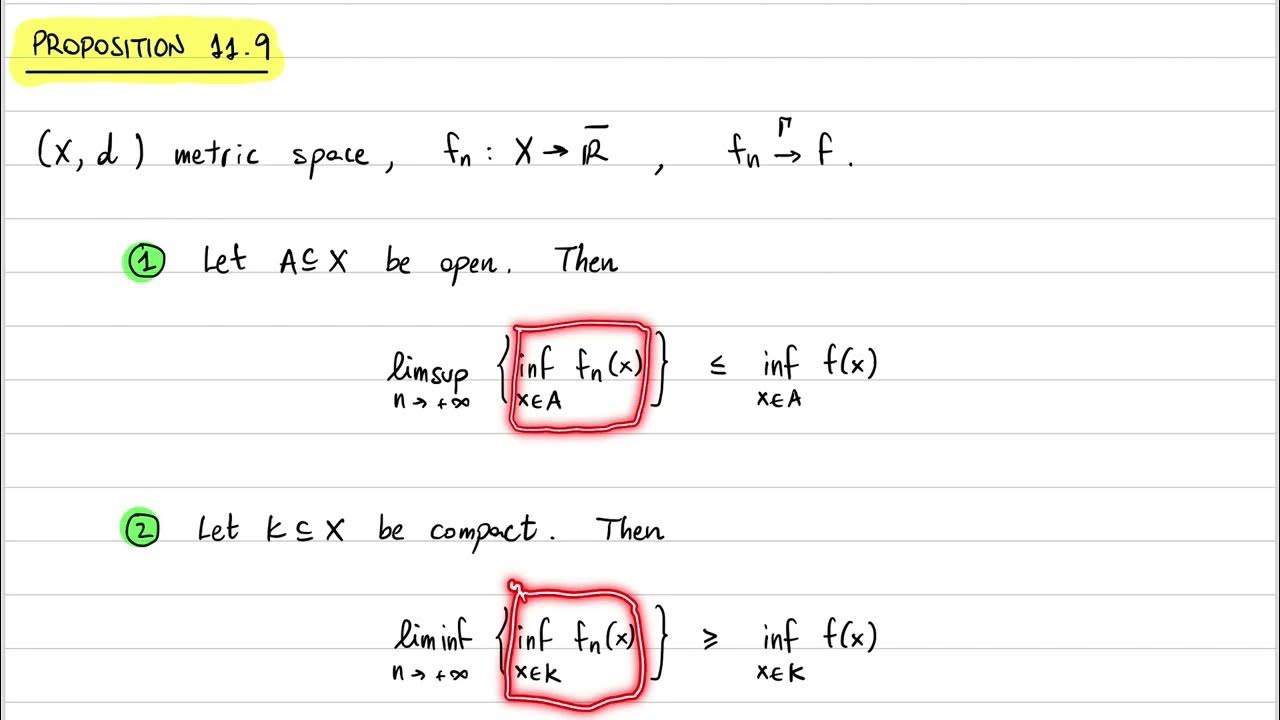 PROPOSITION 11.9
(X, d) metric space, fₙ : X → ℝ̅ , fₙ →^Γ f.
① Let A ⊆ X be open. Then
limsup_{n → +∞} { inf_{x ∈ A} fₙ(x) } ≤ inf_{x ∈ A} f(x)
② Let K ⊆ X be compact. Then
liminf_{n → +∞} { inf_{x ∈ K} fₙ(x) } ≥ inf_{x ∈ K} f(x)